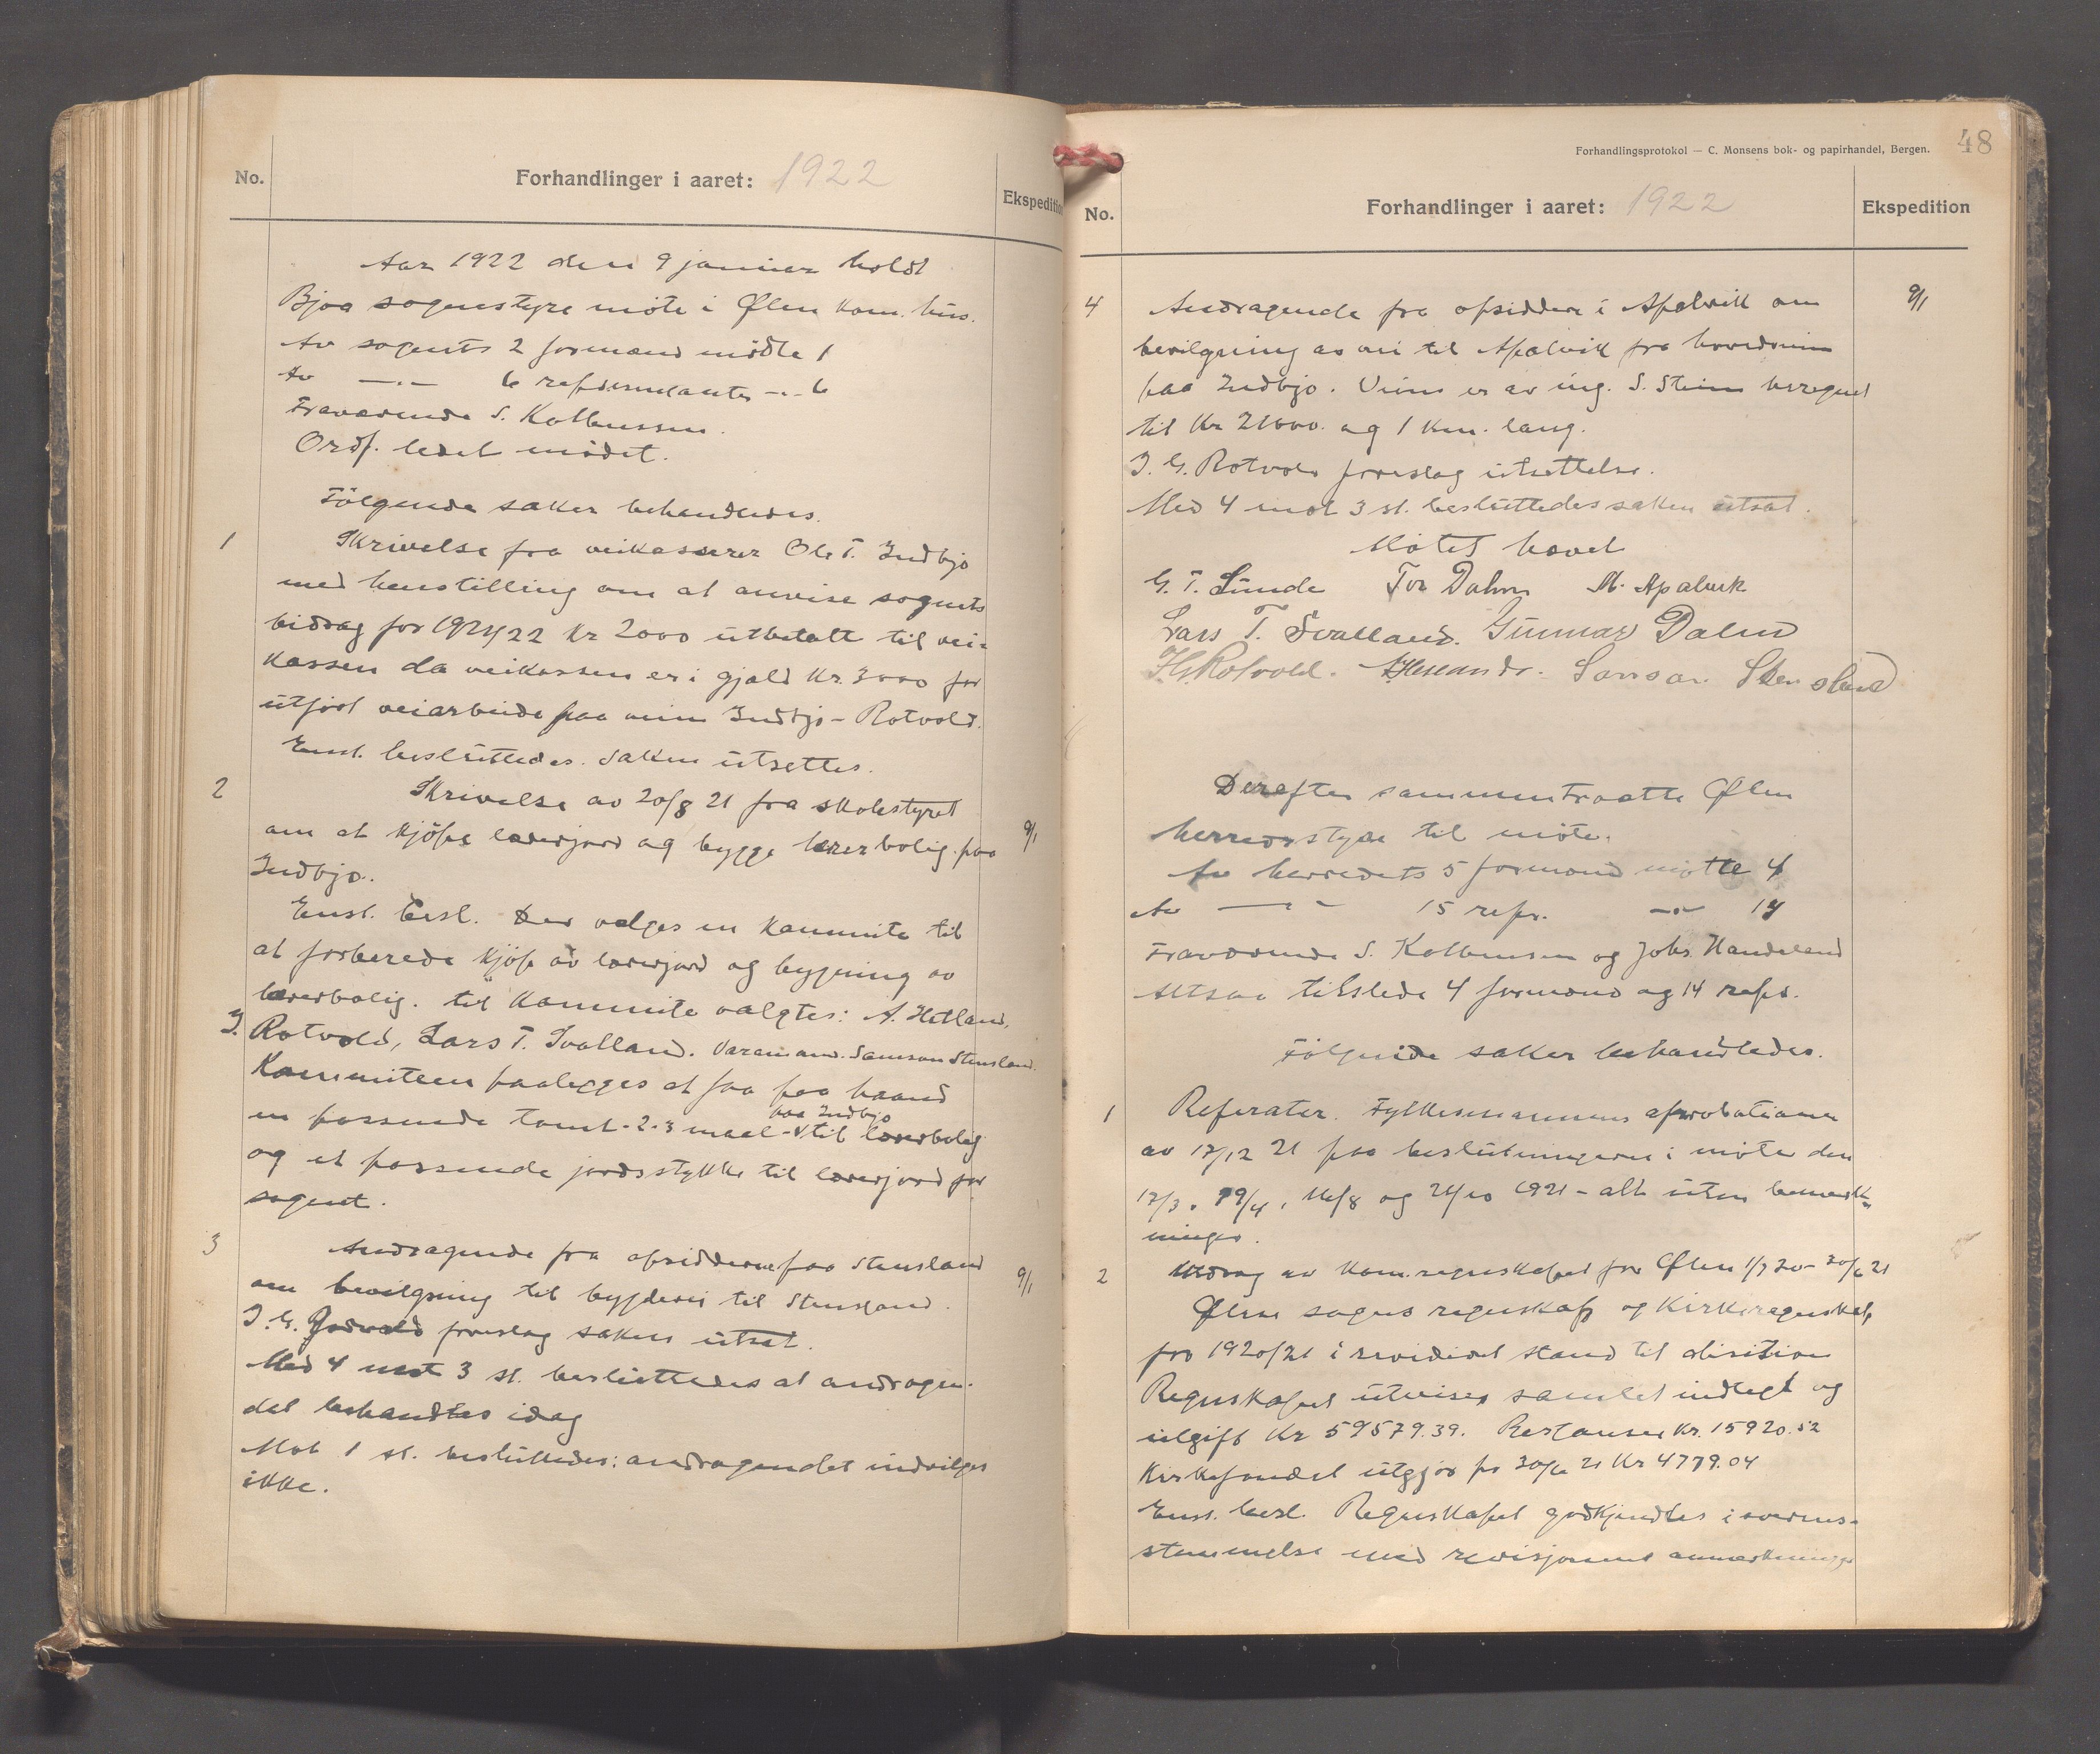 No.
Forhandlinger i aaret: 1922
Ekspedition
Aar 1922 den 9 januar holdt
Bjoa sognestyre møte i Ølen kom. hus.
Av sognets 2 formænd mødte 1
Av —"— 6 repræsentanter -"- 6
Fraværende S. Kolbenssen.
Ordf. ledet mødet.
Følgende saker behandledes.
1
Skrivelse fra veikasserer Ole T. Indbjo
med henstilling om at anvise sognets
bidrag for 1921/22 Kr 2000 utbetalt til vei-
kassen da veikassen er i gjæld Kr. 3000 for
utført veiarbeide paa veien Indbjo - Rotvold.
Enst. besluttedes. Saken utsettes.
2
Skrivelse av 20/8 21 fra skolestyret
om at kjøpe lærerjord og bygge lærerbolig paa
9/1
Indbjo.
Enst. besl. Der velges en kommite til
at forberede kjøp av lærerjord og bygning av
lærerbolig. til kommite valgtes: A. Hetland,
J. Rotvold, Lars T. Svolland. Varamand. Samson Stensland.
Kommiteen paalegges at faa paa haand
en passende tomt - 2-3 maal - paa Indbjo til lærerbolig
og et passende jordsstykke til lærerjord for
sognet.
3
Andragende fra opsidderne paa Stensland
om bevilgning til bygdevei til Stensland.
9/1
J. G. Rotvold foreslog saken utsat.
Med 4 mot 3 st. besluttedes at andragen-
det behandles idag
Mot 1 st. besluttedes: andragendet indvilges
ikke.
Forhandlingsprotokol — C. Monsens bok- og papirhandel, Bergen.
48
No.
Forhandlinger i aaret: 1922
Ekspedition
4
Andragende fra opsiddere i Apalvik om
9/1
bevilgning av vei til Apalvik fra hovedveien
paa Indbjo. Veien er av ing. S. Stein beregnet
til Kr 21000. og 1 km. lang.
J. G. Rotvold foreslog utsettelse.
Med 4 mot 3 st. besluttedes saken utsat.
Møtet hævet
G. T. Lunde Tor Dalen M. Apalvik
Lars T. Svolland. Gunnar Dalen
J. G. Rotvold. Samson Stensland
Derefter sammentraatte Ølen
herredsstyre til møte.
Av herredets 5 formænd møtte 4
Av —"— 15 repr. -"- 14
Fraværende S. Kolbensen og Johs. Handeland
Altsaa tilstede 4 formænd og 14 repr.
Følgende saker behandledes.
1
Referater. Fylkesmannens aprobationer
av 17/12 21 paa beslutningerne i møter den
17/3, 19/4, 16/8 og 21/10 1921 - alt uten bemerk-
ninger.
2
Utdrag av kom.regnskapet for Ølen 1/7 20 - 30/6 21
Ølen sogns regnskap og Kirkeregnskap
for 1920/21 i revideret stand til decision
Regnskapet utviser samlet indtegt og
utgift Kr 59579.39. Restanser Kr. 15920.52
Kirkefondet utgjør pr 30/6 21 Kr 4779.04
Enst. besl. Regnskapet godkjendtes i overens-
stemmelse med revisjonens anmerkninger